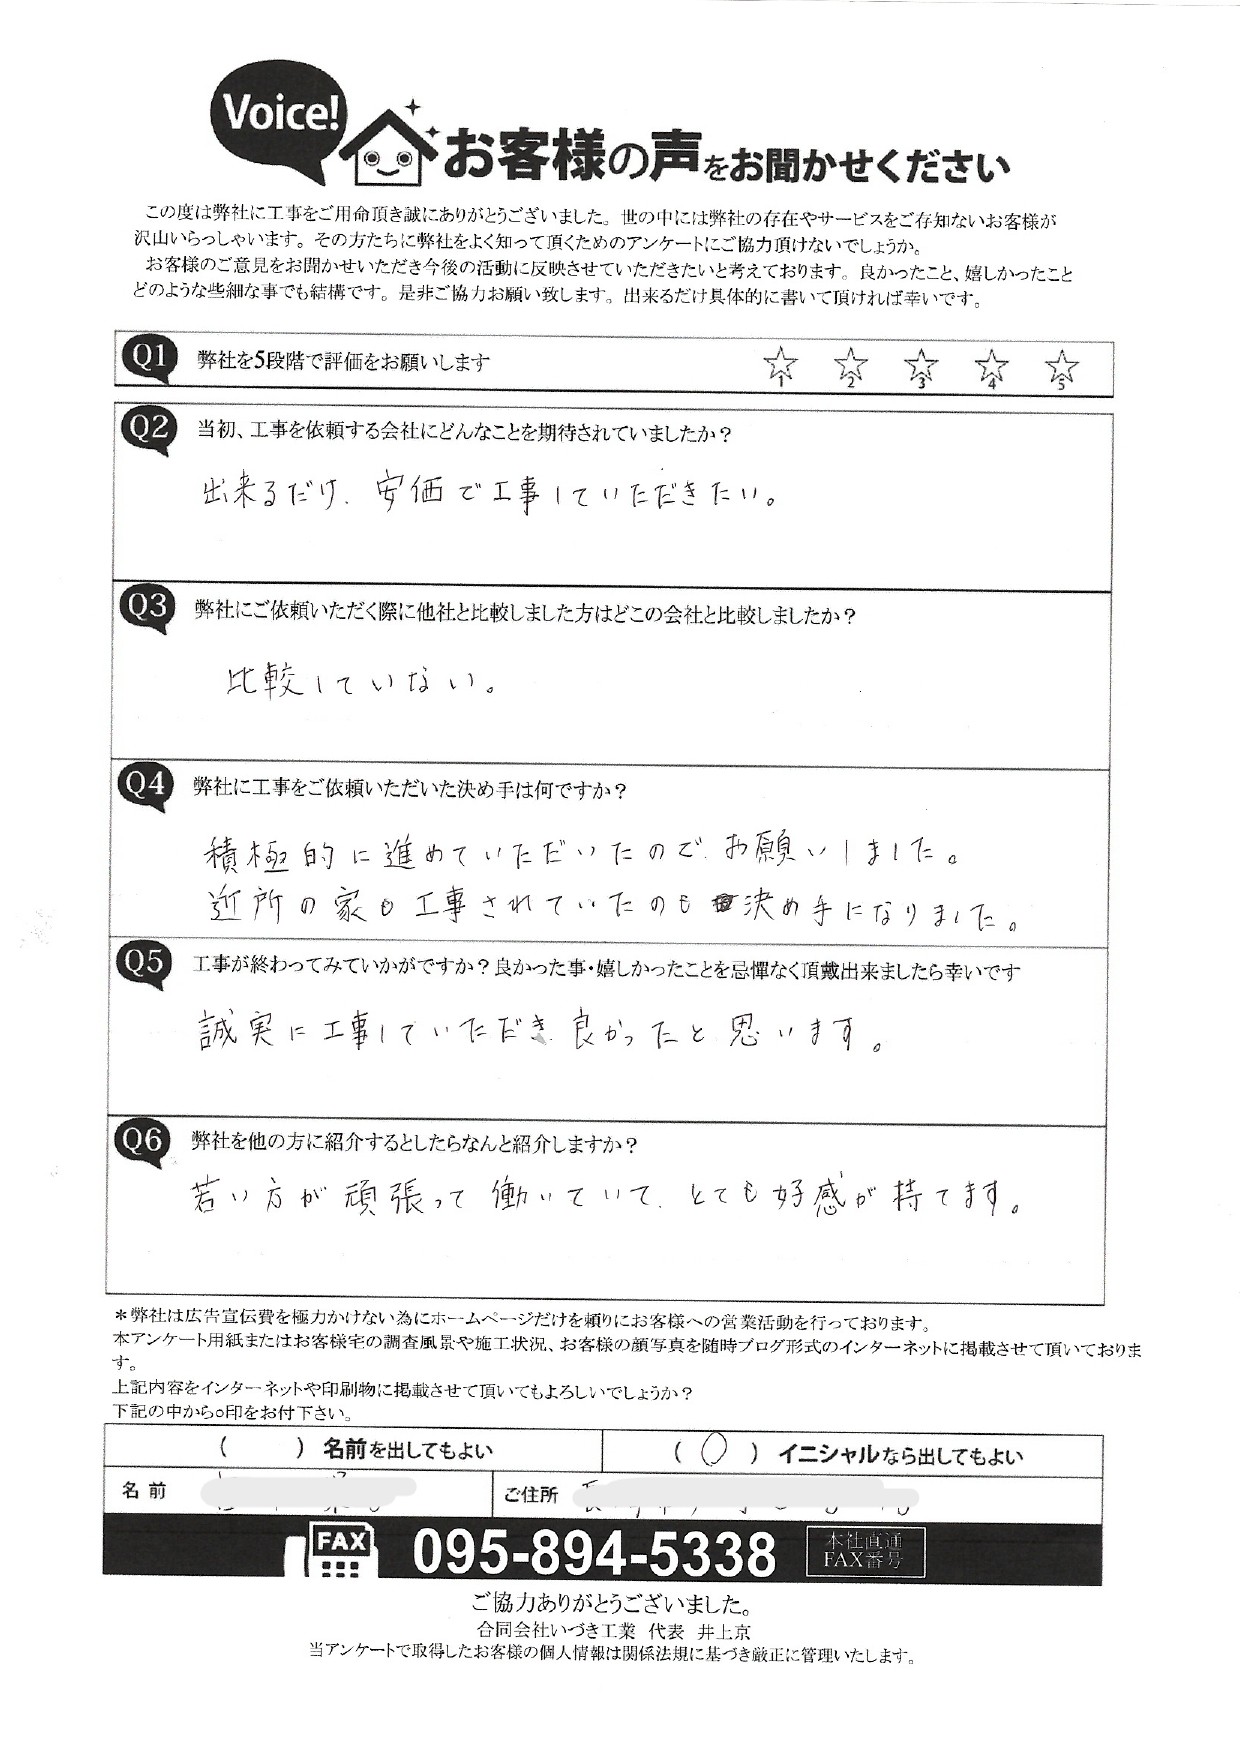 Voice!
お客様の声をお聞かせください
この度は弊社に工事をご用命頂き誠にありがとうございました。世の中には弊社の存在やサービスをご存知ないお客様が
沢山いらっしゃいます。その方たちに弊社をよく知って頂くためのアンケートにご協力頂けないでしょうか。
お客様のご意見をお聞かせいただき今後の活動に反映させていただきたいと考えております。良かったこと、嬉しかったこと
どのような些細な事でも結構です。是非ご協力お願い致します。出来るだけ具体的に書いて頂ければ幸いです。
Q1 弊社を5段階で評価をお願いします ☆1 ☆2 ☆3 ☆4 ☆5
Q2 当初、工事を依頼する会社にどんなことを期待されていましたか？
出来るだけ、安価で工事していただきたい。
Q3 弊社にご依頼いただく際に他社と比較しました方はどこの会社と比較しましたか？
比較していない。
Q4 弊社に工事をご依頼いただいた決め手は何ですか？
積極的に進めていただいたので、お願いしました。
近所の家も工事されていたのも決め手になりました。
Q5 工事が終わってみていかがですか？良かった事・嬉しかったことを忌憚なく頂戴出来ましたら幸いです
誠実に工事していただき良かったと思います。
Q6 弊社を他の方に紹介するとしたらなんと紹介しますか？
若い方が頑張って働いていて、とても好感が持てます。
＊弊社は広告宣伝費を極力かけない為にホームページだけを頼りにお客様への営業活動を行っております。
本アンケート用紙またはお客様宅の調査風景や施工状況、お客様の顔写真を随時ブログ形式のインターネットに掲載させて頂いておりま
す。
上記内容をインターネットや印刷物に掲載させて頂いてもよろしいでしょうか？
下記の中から○印をお付下さい。
（　　）名前を出してもよい （○）イニシャルなら出してもよい
名前 ご住所
FAX 095-894-5338 本社直通
FAX番号
ご協力ありがとうございました。
合同会社いづき工業 代表 井上京
当アンケートで取得したお客様の個人情報は関係法規に基づき厳正に管理いたします。